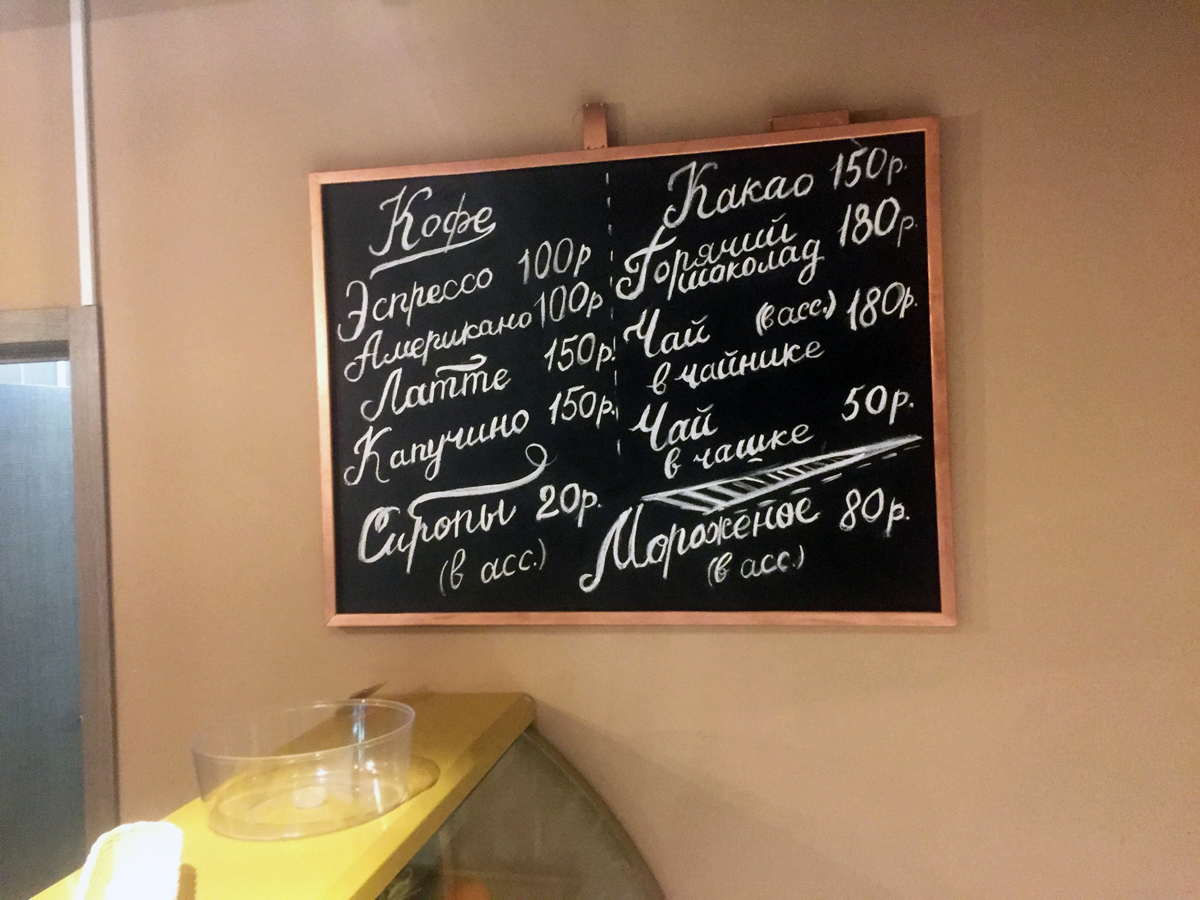 Кофе
Эспрессо 100р
Американо 100р
Латте 150р.
Капучино 150р.
Сиропы 20р.
(в асс.)
Какао 150р.
Горячий
шоколад 180р.
Чай (в асс.) 180р.
в чайнике
Чай 50р.
в чашке
Мороженое 80р.
(в асс.)